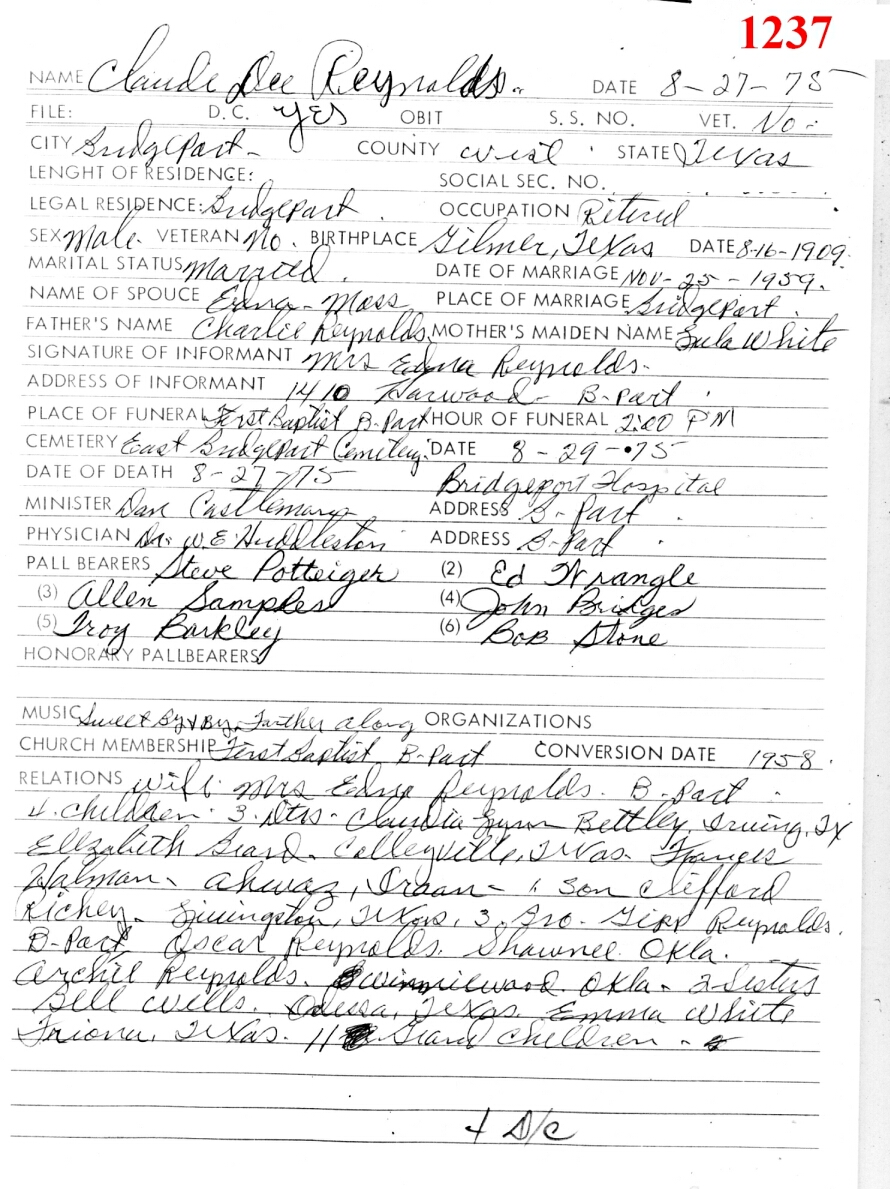 1237
NAME Claude Dee Reynolds. DATE 8-27-75
FILE: D.C. YES OBIT S.S. NO. VET. No-
CITY BridgePort- COUNTY Wise STATE Texas
LENGHT OF RESIDENCE: SOCIAL SEC. NO.
LEGAL RESIDENCE: BridgePort. OCCUPATION Retired
SEX Male. VETERAN No. BIRTHPLACE Gilmer, Texas DATE 8-16-1909.
MARITAL STATUS Married. DATE OF MARRIAGE Nov-25-1959.
NAME OF SPOUCE Edna-Moss PLACE OF MARRIAGE BridgePort.
FATHER'S NAME Charlie Reynolds. MOTHER'S MAIDEN NAME White
SIGNATURE OF INFORMANT Mrs Edna Reynolds.
ADDRESS OF INFORMANT 1410 Harwood- B-Port.
PLACE OF FUNERAL First Baptist B-Port HOUR OF FUNERAL 2:00 PM
CEMETERY East BridgePort Cemetery. DATE 8-29-75
DATE OF DEATH 8-27-75 Bridgeport Hospital
MINISTER Dan Castleman ADDRESS B-Port.
PHYSICIAN Dr. W.E. Huddleston ADDRESS B-Port.
PALL BEARERS Steve Potteiger (2) Ed Wrangle
(3) Allen Samples (4) John Bridges
(5) Troy Barkley (6) Bob Stone
HONORARY PALLBEARERS
MUSIC Sweet By & By, Farther along ORGANIZATIONS
CHURCH MEMBERSHIP First Baptist B-Port CONVERSION DATE 1958.
RELATIONS Wife Mrs Edna Reynolds. B-Port.
4. children. 3. Dtrs- Claudia Lynn Bettley, Irving, TX
Ellzabeth Colleyville, Texas. Frances
Ahwaz, Iraan- 1 son Clifford
Richey- Livingston, Texas, 3. Bro. Reynolds.
B-Port, Oscar Reynolds. Shawnee. Okla.
Archie Reynolds. Okla- 2-Sisters
Bell Wells. Odessa, Texas. Emma White
Friona, Texas. 11 Grand children -
4 D/C